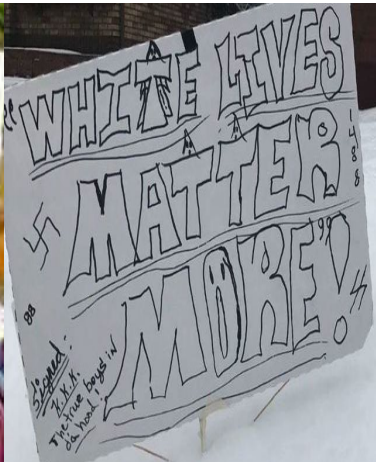 "WHITE LIVES
MATTER
MORE"!
1488
88
Signed:
K.K.K.
The true boys in
da hood!